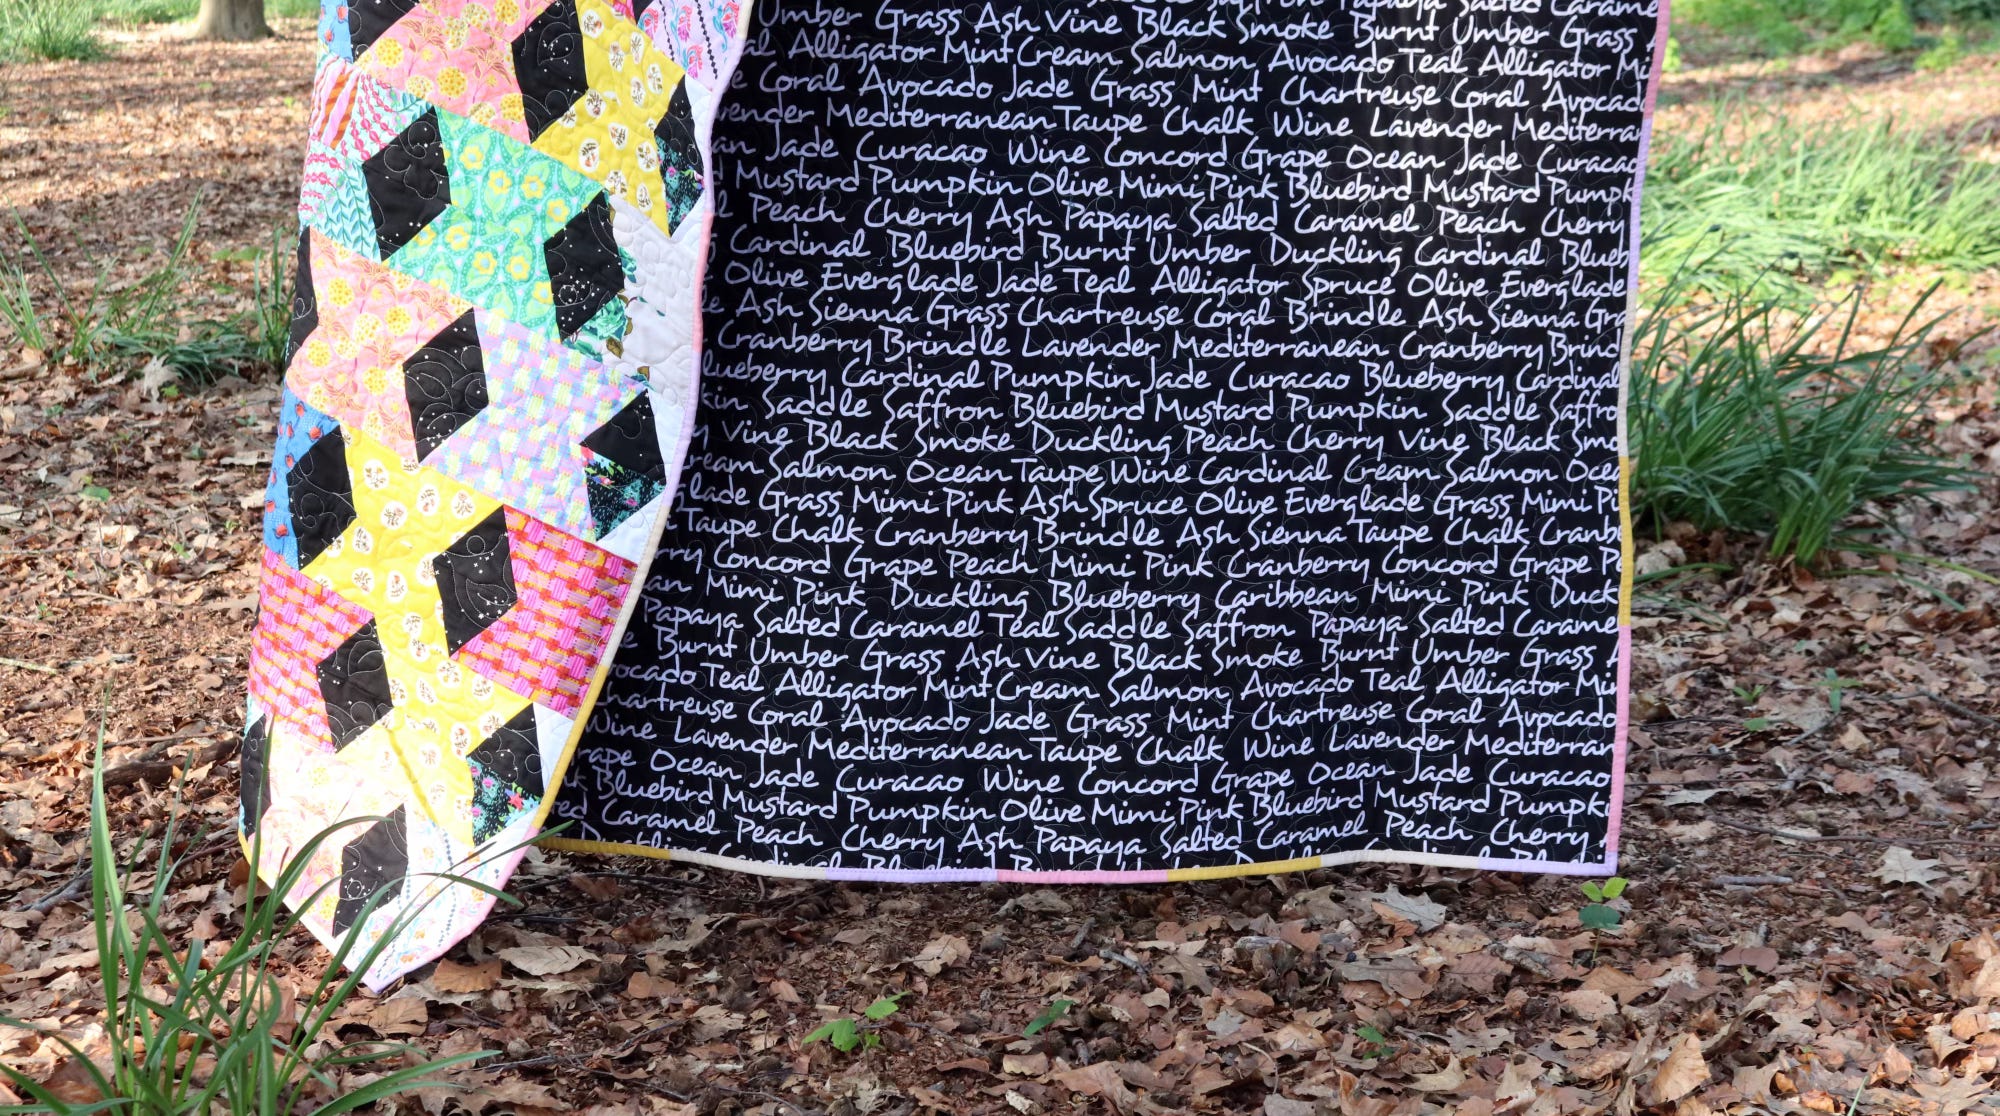 Saffron Papaya Salted Carame
Umber Grass Ash Vine Black Smoke Burnt Umber Grass
al Alligator Mint Cream Salmon Avocado Teal Alligator Mi
e Coral Avocado Jade Grass Mint Chartreuse Coral Avocado
vender Mediterranean Taupe Chalk Wine Lavender Mediterran
an Jade Curacao Wine Concord Grape Ocean Jade Curacao
d Mustard Pumpkin Olive Mimi Pink Bluebird Mustard Pumpk
l Peach Cherry Ash Papaya Salted Caramel Peach Cherry
Cardinal Bluebird Burnt Umber Duckling Cardinal Blueb
Olive Everglade Jade Teal Alligator Spruce Olive Everglade
e Ash Sienna Grass Chartreuse Coral Brindle Ash Sienna Gra
Cranberry Brindle Lavender Mediterranean Cranberry Brind
lueberry Cardinal Pumpkin Jade Curacao Blueberry Cardinal
kin Saddle Saffron Bluebird Mustard Pumpkin Saddle Saffro
y Vine Black Smoke Duckling Peach Cherry Vine Black Smo
ream Salmon Ocean Taupe Wine Cardinal Cream Salmon Ocea
glade Grass Mimi Pink Ash Spruce Olive Everglade Grass Mimi Pi
Taupe Chalk Cranberry Brindle Ash Sienna Taupe Chalk Cranb
rry Concord Grape Peach Mimi Pink Cranberry Concord Grape Pe
ean Mimi Pink Duckling Blueberry Caribbean Mimi Pink Duck
Papaya Salted Caramel Teal Saddle Saffron Papaya Salted Carame
e Burnt Umber Grass Ash Vine Black Smoke Burnt Umber Grass
vocado Teal Alligator Mint Cream Salmon Avocado Teal Alligator Min
Chartreuse Coral Avocado Jade Grass Mint Chartreuse Coral Avocado
Wine Lavender Mediterranean Taupe Chalk Wine Lavender Mediterran
rape Ocean Jade Curacao Wine Concord Grape Ocean Jade Curacao
k Bluebird Mustard Pumpkin Olive Mimi Pink Bluebird Mustard Pumpki
ed Caramel Peach Cherry Ash Papaya Salted Caramel Peach Cherry
Duckling Cardinal Bluebird Burnt Umber Duckling Cardinal Blueb